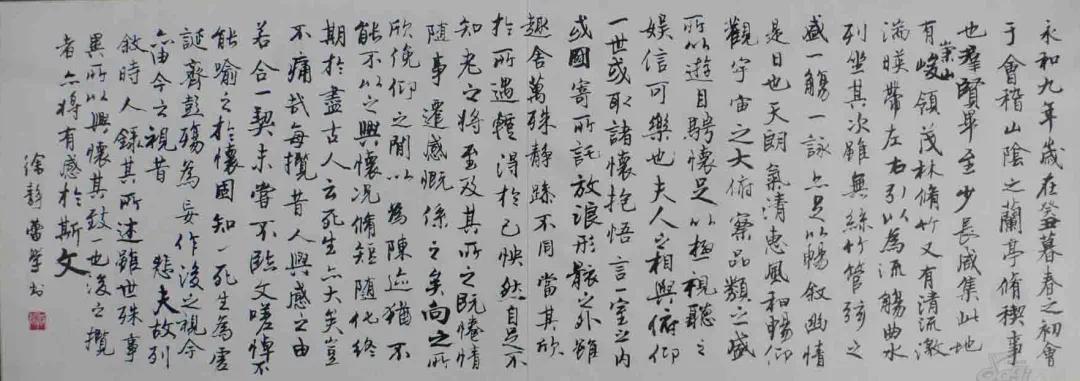 永和九年歲在癸丑暮春之初會
于會稽山陰之蘭亭脩禊事
也羣賢畢至少長咸集此地
有崇山峻領茂林脩竹又有清流激
湍暎帶左右引以為流觴曲水
列坐其次雖無絲竹管弦之
盛一觴一詠亦足以暢敘幽情
是日也天朗氣清惠風和暢仰
觀宇宙之大俯察品類之盛
所以遊目騁懷足以極視聽之
娛信可樂也夫人之相與俯仰
一世或取諸懷抱悟言一室之內
或因寄所託放浪形骸之外雖
趣舍萬殊靜躁不同當其欣
於所遇蹔得於己怏然自足不
知老之將至及其所之既惓情
隨事遷感慨係之矣向之所
欣俛仰之間以為陳迹猶不
能不以之興懷況脩短隨化終
期於盡古人云死生亦大矣豈
不痛哉每攬昔人興感之由
若合一契未嘗不臨文嗟悼不
能喻之於懷固知一死生為虛
誕齊彭殤為妄作後之視今
亦由今之視昔悲夫故列
敘時人錄其所述雖世殊事
異所以興懷其致一也後之攬
者亦將有感於斯文
徐靜蕾學書